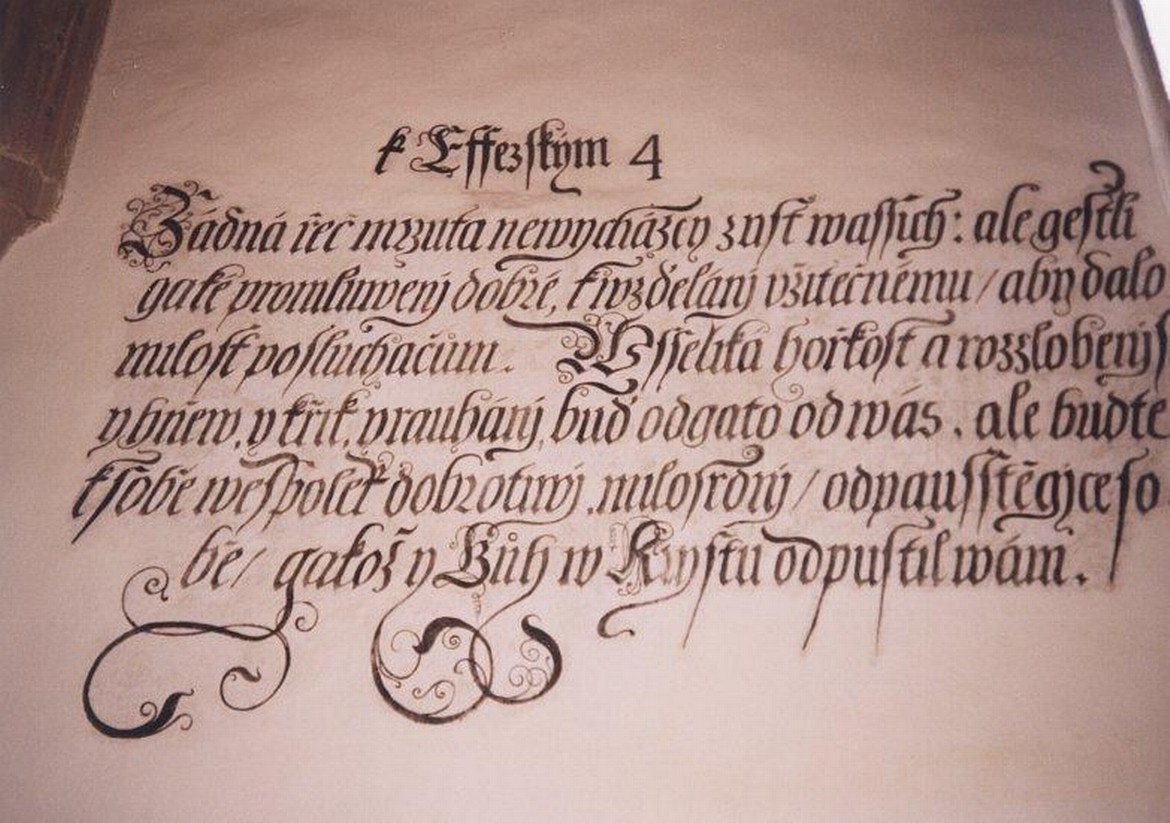 k Effezským 4
Žádná řeč mrzuta newycházey z ust wassich: ale gestli
gaké promluwenj dobré, k wzdelánj vžitečnému / aby dalo
milost posluchačům. Wsseliká hořkost a rozzlobenj
y hněw, y křik, y rauhánj, buď odgato od wás. ale buďte
k sobě wespolek dobrotiwj, milosrdnj / odpausstěgjce so
bě / gakož y Bůh w Krystu odpustil wám.